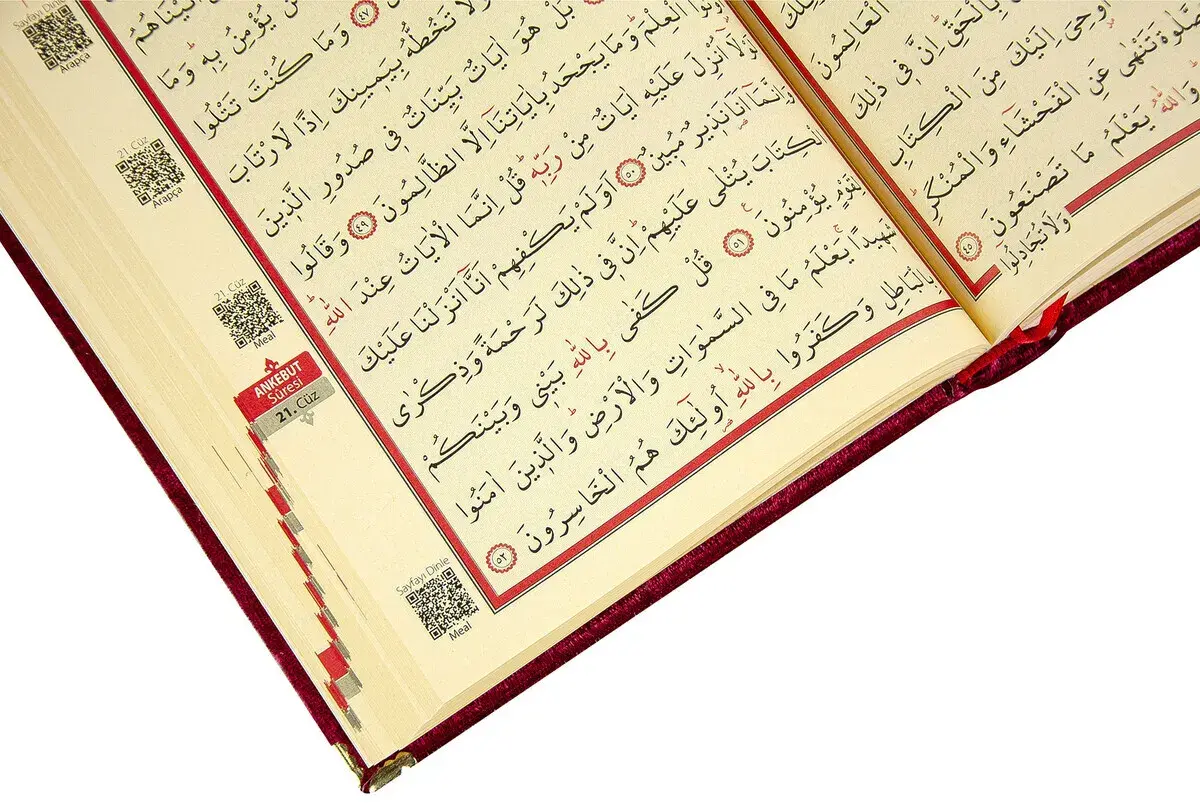 ذٰلِكَ
الْعَالِمُونَ
بِالْحَقِّ اِنَّ فٖى ذٰلِكَ
اُوحِىَ اِلَيْكَ مِنَ الْكِتَابِ
تَنْهٰى عَنِ الْفَحْشَاءِ وَالْمُنْكَرِ
وَاللّٰهُ يَعْلَمُ مَا تَصْنَعُونَ ٤٥
وَلَا تُجَادِلُوا
اٰتَيْنَاهُمُ
مَنْ يُؤْمِنُ بِهٖ وَمَا
٤٧ وَمَا كُنْتَ تَتْلُوا
وَلَا تَخُطُّهُ بِيَمٖينِكَ اِذًا لَارْتَابَ
بَلْ هُوَ اٰيَاتٌ بَيِّنَاتٌ فٖى صُدُورِ الَّذٖينَ
الْعِلْمَ وَمَا يَجْحَدُ بِاٰيَاتِنَا اِلَّا الظَّالِمُونَ ٤٩ وَقَالُوا
لَوْلَا اُنْزِلَ عَلَيْهِ اٰيَاتٌ مِنْ رَبِّهٖ قُلْ اِنَّمَا الْاٰيَاتُ عِنْدَ اللّٰهِ
وَاِنَّمَا اَنَا نَذٖيرٌ مُبٖينٌ ٥٠ اَوَلَمْ يَكْفِهِمْ اَنَّا اَنْزَلْنَا عَلَيْكَ
الْكِتَابَ يُتْلٰى عَلَيْهِمْ اِنَّ فٖى ذٰلِكَ لَرَحْمَةً وَذِكْرٰى
لِقَوْمٍ يُؤْمِنُونَ ٥١ قُلْ كَفٰى بِاللّٰهِ بَيْنٖى وَبَيْنَكُمْ
شَهٖيدًا يَعْلَمُ مَا فِى السَّمٰوَاتِ وَالْاَرْضِ وَالَّذٖينَ اٰمَنُوا
بِالْبَاطِلِ وَكَفَرُوا بِاللّٰهِ اُولٰئِكَ هُمُ الْخَاسِرُونَ ٥٢
Sayfayı Dinle
Arapça
21. Cüz
Arapça
21. Cüz
Meal
ANKEBUT
Sûresi
21. Cüz
Sayfayı Dinle
Meal